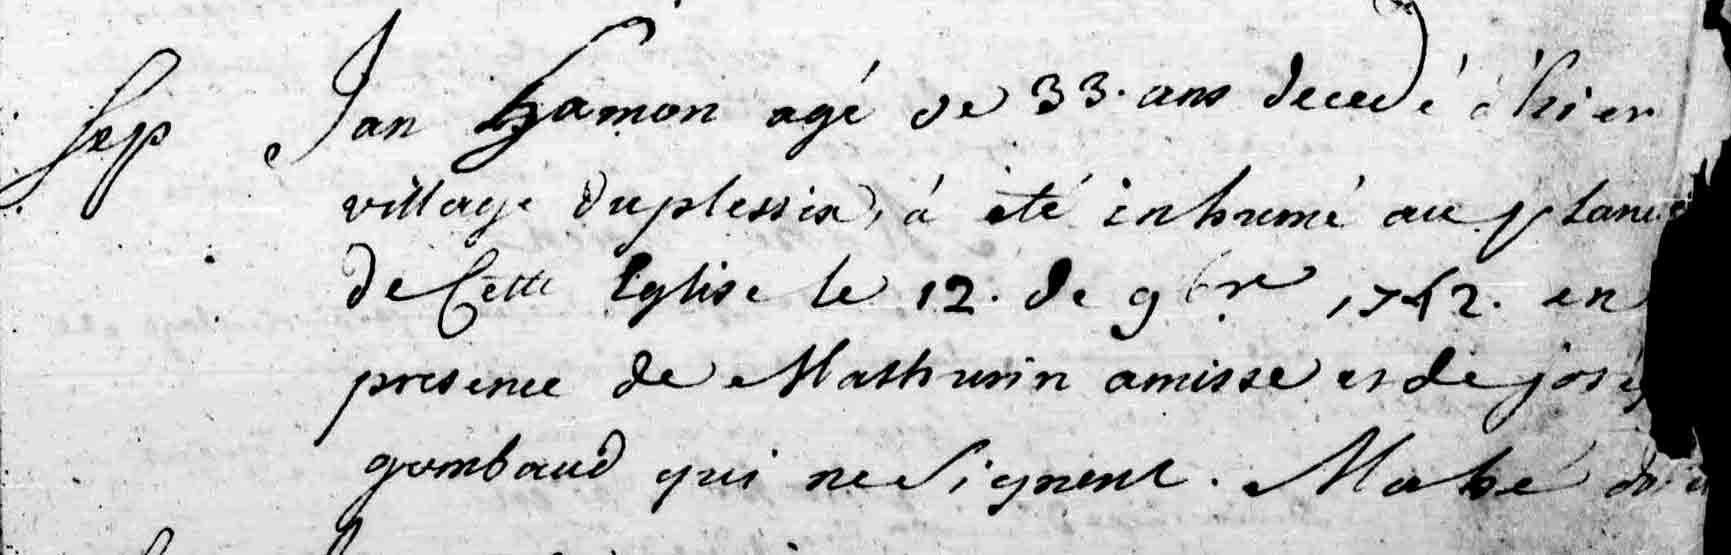 Sep Jan hamon agé de 33. ans decedé d'hier
village duplessix, á eté inhumé au placi
de Cette Eglise le 12. de 9br 1742. en
presence de Mathurin amisse et de jos
gombaud qui ne signent. Mahé